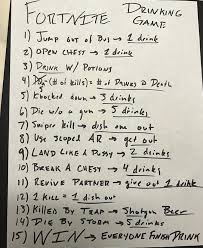 FORTNITE DRINKING
GAME
1) JUMP OUT OF BUS → 1 drink
2) OPEN CHEST → 1 drink
3) DRINK W/ POTIONS
4) (# of kills) = # of DRINKS @ DEATH
5) Knocked down → 3 drinks
6) Die w/o a gun → 5 drinks
7) Sniper kill → dish one out
8) Use Scoped AR → get out
9) LAND LIKE A PUSSY → 2 drinks
10) BREAK A CHEST → 4 drinks
11) REVIVE PARTNER → give out 1 drink
12) 1 KILL = 1 dish out
13) KILLED BY TRAP → Shotgun Beer
14) DIE BY STORM → 5 drinks
15) WIN → EVERYONE FINISH DRINK